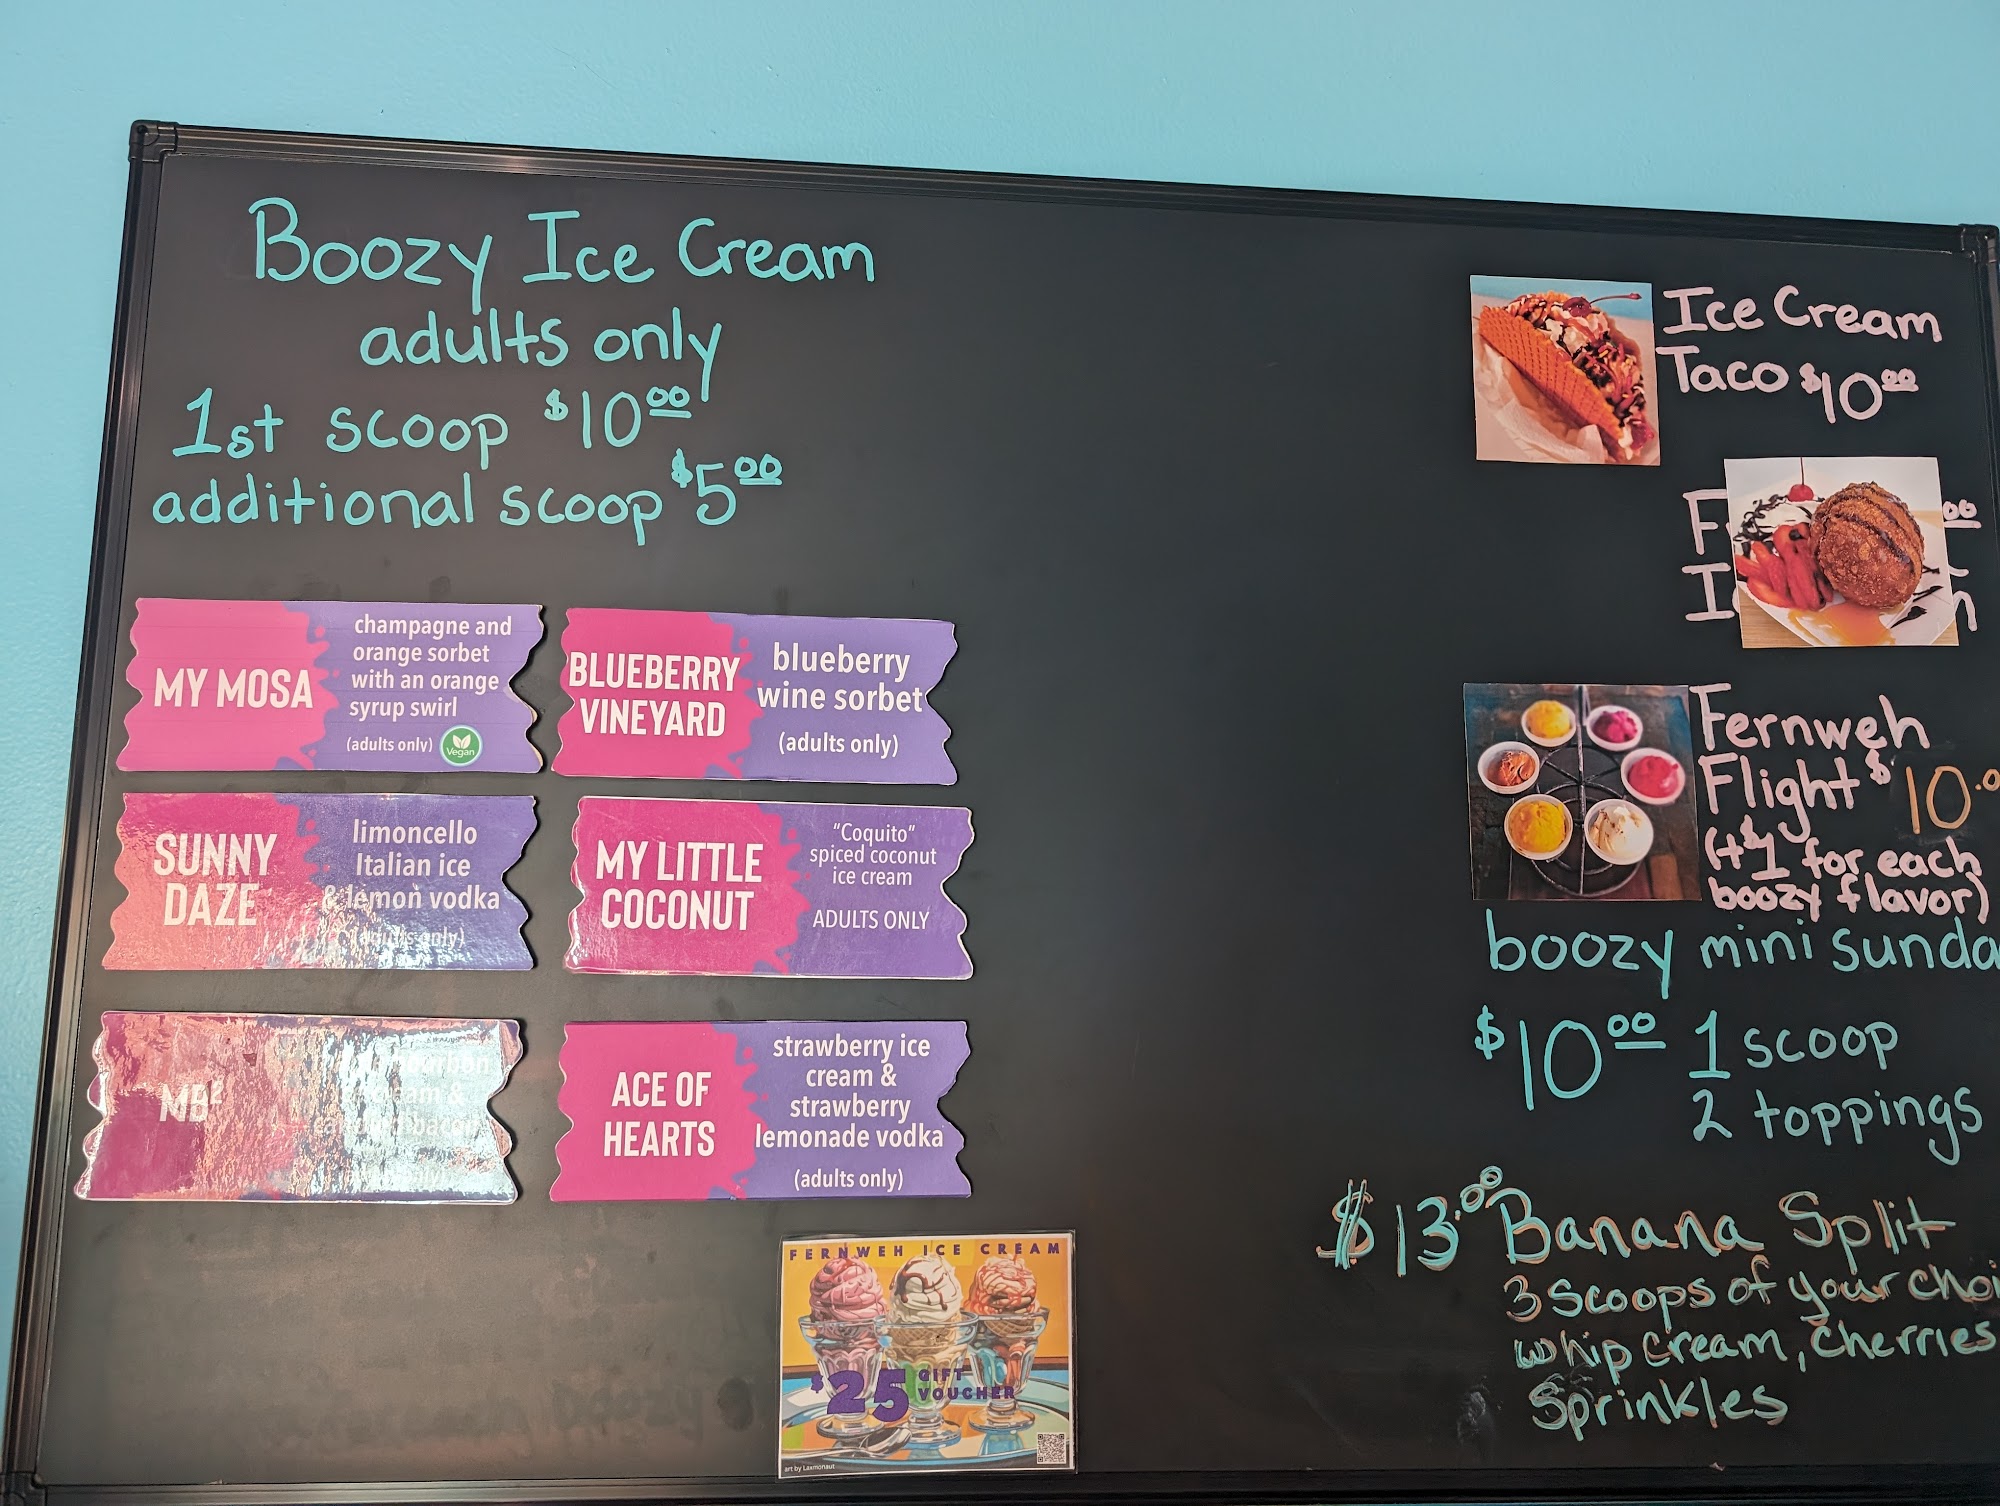 Boozy Ice Cream
adults only
1st scoop $10.00
additional scoop $5.00
MY MOSA
champagne and
orange sorbet
with an orange
syrup swirl
(adults only)
Vegan
BLUEBERRY
VINEYARD
blueberry
wine sorbet
(adults only)
SUNNY
DAZE
limoncello
Italian ice
& lemon vodka
(adults only)
MY LITTLE
COCONUT
"Coquito"
spiced coconut
ice cream
ADULTS ONLY
MB²
ACE OF
HEARTS
strawberry ice
cream &
strawberry
lemonade vodka
(adults only)
FERNWEH ICE CREAM
$25 GIFT
VOUCHER
art by Laxmonaut
Ice Cream
Taco $10.00
Fernweh
Flight $10.0
(+$1 for each
boozy flavor)
boozy mini sunda
$10.00 1 scoop
2 toppings
$13.00 Banana Split
3 scoops of your choi
whip cream, cherries
Sprinkles